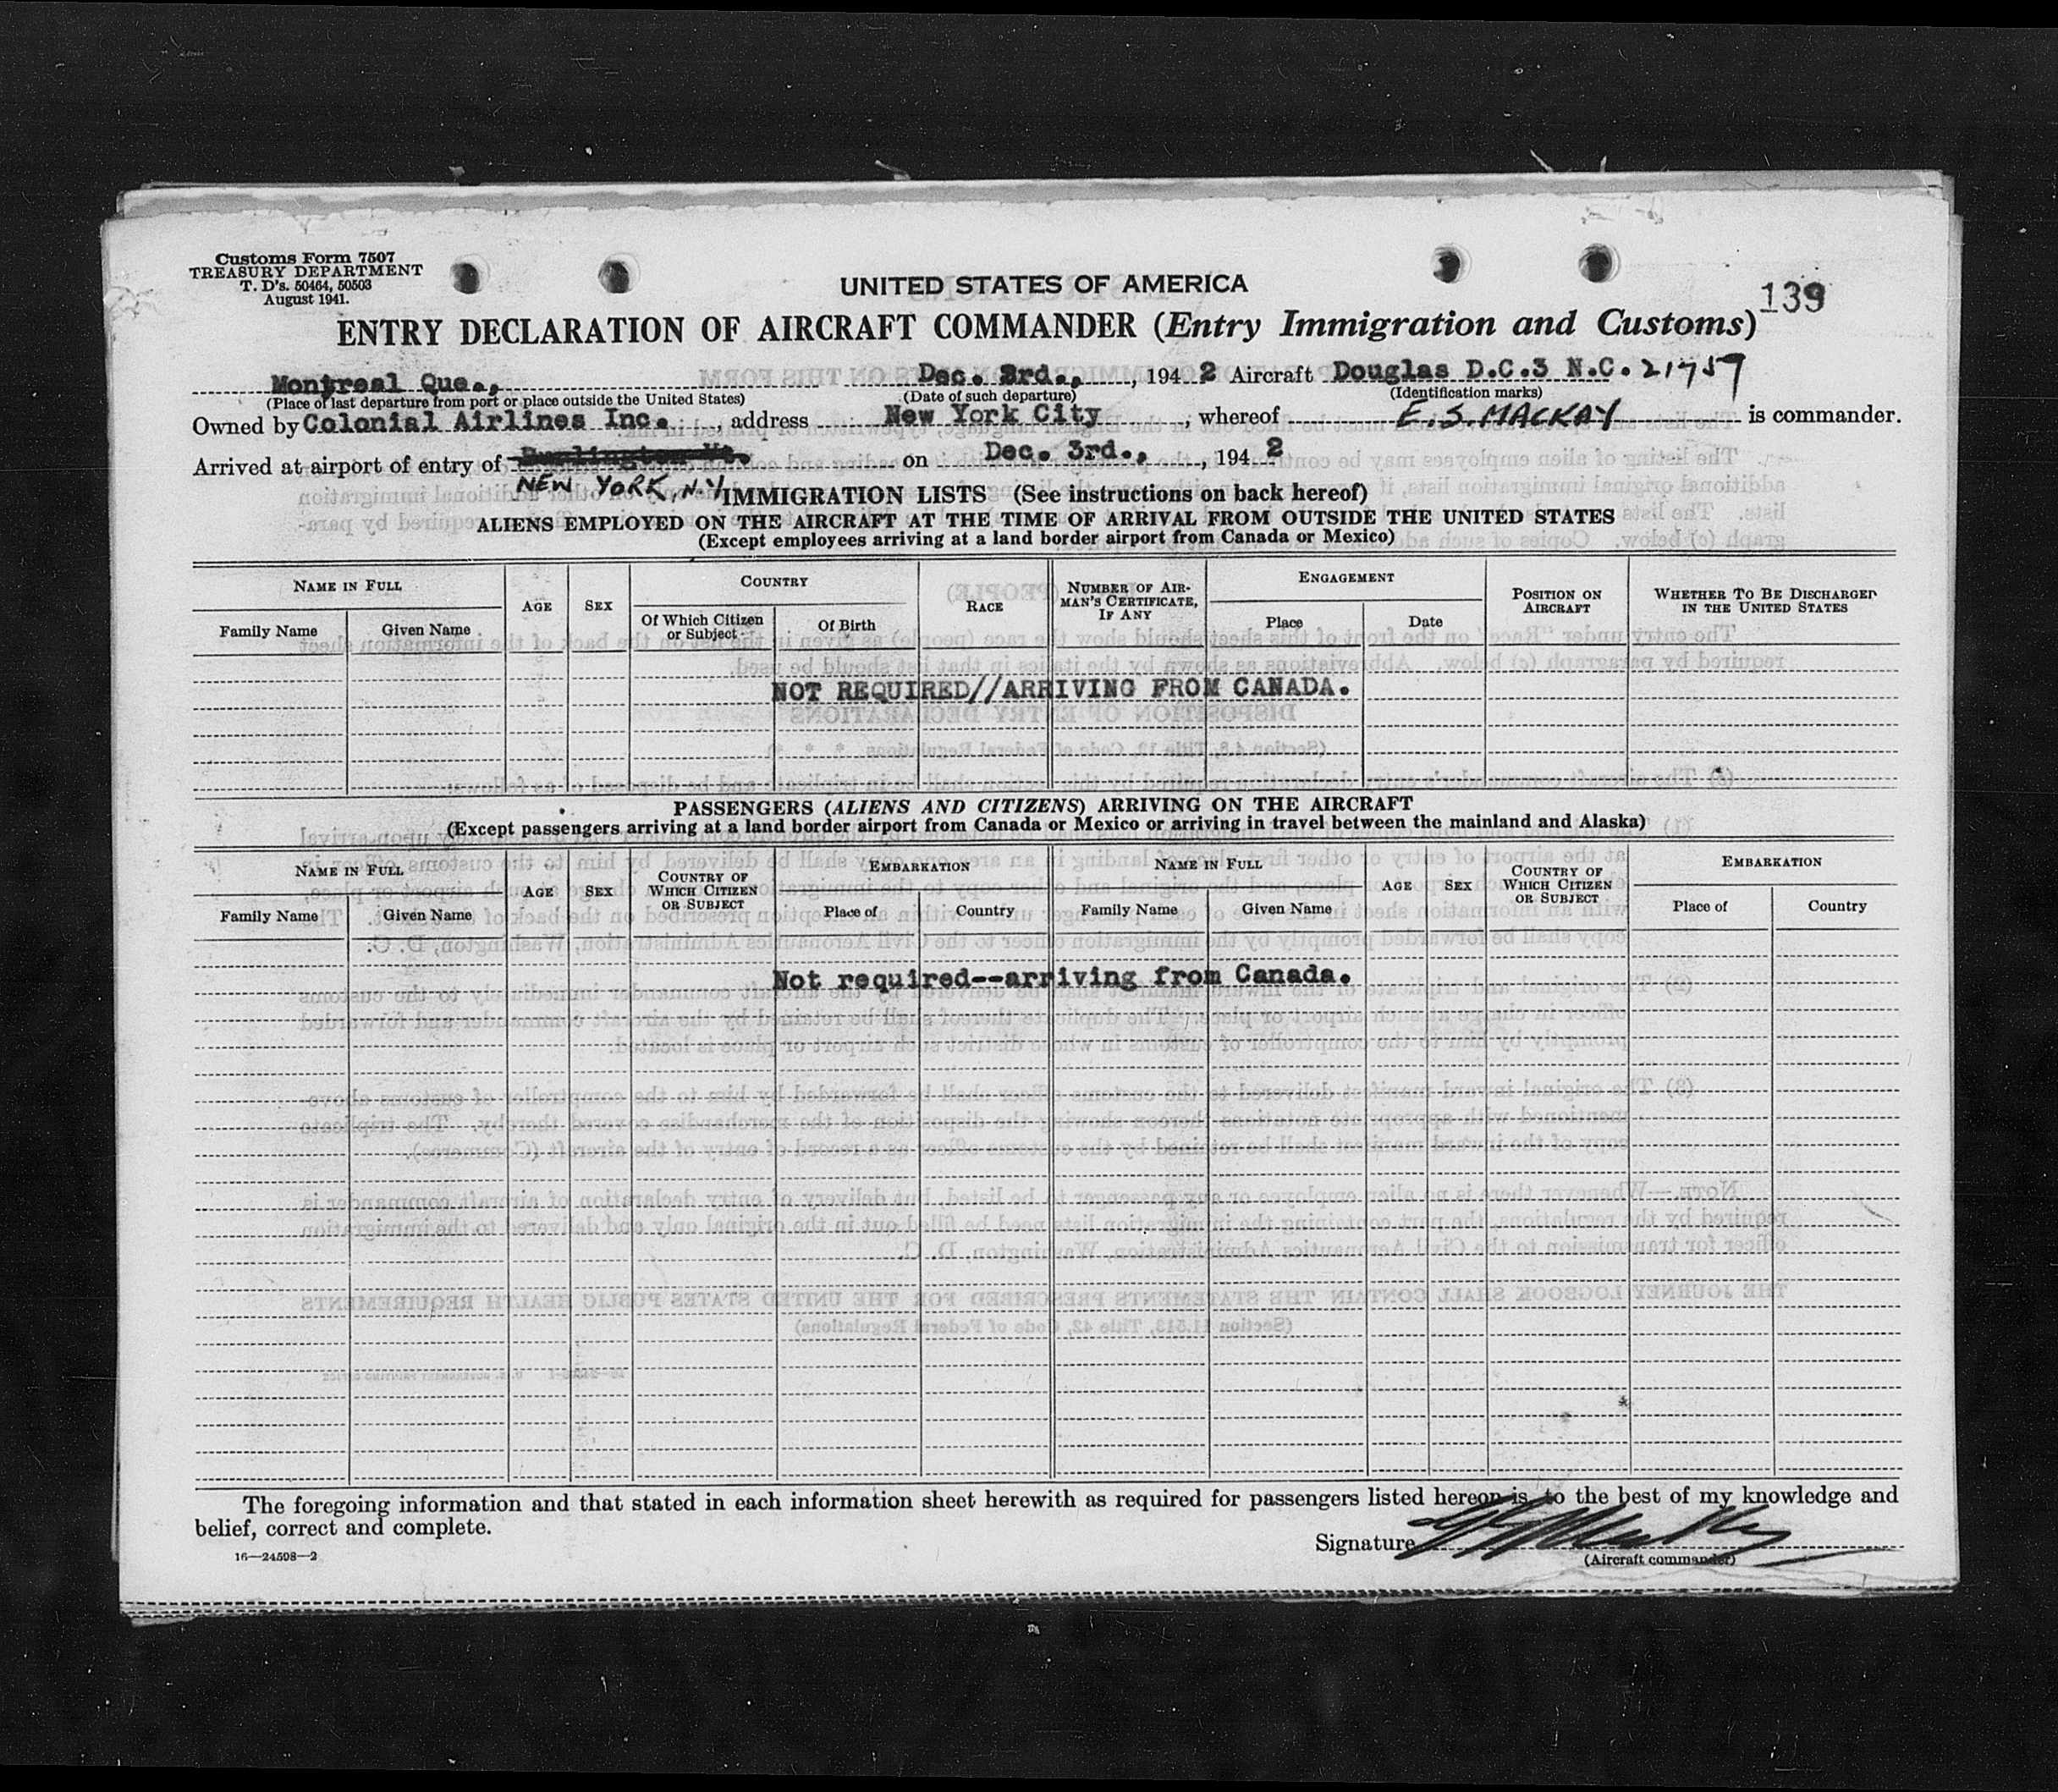 Customs Form 7507
TREASURY DEPARTMENT
T. D's. 50464, 50503
August 1941.
UNITED STATES OF AMERICA
139
ENTRY DECLARATION OF AIRCRAFT COMMANDER (Entry Immigration and Customs)
Montreal Que., Dec. 3rd., , 194 2 Aircraft Douglas D.C.3 N.C. 21759
(Place of last departure from port or place outside the United States) (Date of such departure) (Identification marks)
Owned by Colonial Airlines Inc. , address New York City , whereof E.S. MACKAY is commander.
Arrived at airport of entry of Burlington Vt. on Dec. 3rd., , 194 2
NEW YORK, N.Y. IMMIGRATION LISTS (See instructions on back hereof)
ALIENS EMPLOYED ON THE AIRCRAFT AT THE TIME OF ARRIVAL FROM OUTSIDE THE UNITED STATES
(Except employees arriving at a land border airport from Canada or Mexico)
NAME IN FULL AGE SEX COUNTRY RACE NUMBER OF AIRMAN'S CERTIFICATE, IF ANY ENGAGEMENT POSITION ON AIRCRAFT WHETHER TO BE DISCHARGED IN THE UNITED STATES
Family Name Given Name Of Which Citizen or Subject Of Birth Place Date
NOT REQUIRED//ARRIVING FROM CANADA.
PASSENGERS (ALIENS AND CITIZENS) ARRIVING ON THE AIRCRAFT
(Except passengers arriving at a land border airport from Canada or Mexico or arriving in travel between the mainland and Alaska)
NAME IN FULL AGE SEX COUNTRY OF WHICH CITIZEN OR SUBJECT EMBARKATION NAME IN FULL AGE SEX COUNTRY OF WHICH CITIZEN OR SUBJECT EMBARKATION
Family Name Given Name Place of Country Family Name Given Name Place of Country
Not required--arriving from Canada.
The foregoing information and that stated in each information sheet herewith as required for passengers listed hereon is, to the best of my knowledge and
belief, correct and complete.
Signature
(Aircraft commander)
16—24598—2